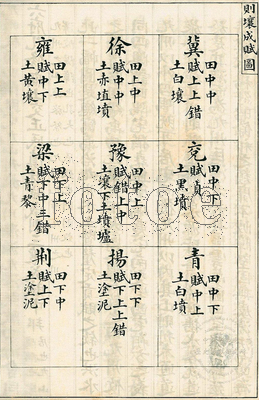 則壤成賦圖
冀
田中中
賦上上錯
土白壤
兗
田中下
賦貞
土黑墳
青
田上下
賦中上
土白墳
徐
田上中
賦中中
土赤埴墳
豫
田中上
賦錯上中
土壤下土墳壚
揚
田下下
賦下上上錯
土塗泥
雍
田上上
賦中下
土黃壤
梁
田下上
賦下中三錯
土青黎
荊
田下中
賦上下
土塗泥
totoe